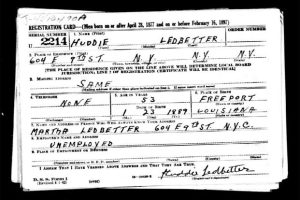 REGISTRATION CARD—(Men born on or after April 28, 1877 and on or before February 16, 1897)
SERIAL NUMBER 1. NAME (Print) ORDER NUMBER
U 2214 HUDDIE LEDBETTER
2. PLACE OF RESIDENCE (Print)
604 E 9TH ST. N.Y. N.Y. N.Y.
[THE PLACE OF RESIDENCE GIVEN ON THE LINE ABOVE WILL DETERMINE LOCAL BOARD
JURISDICTION; LINE 2 OF REGISTRATION CERTIFICATE WILL BE IDENTICAL]
3. MAILING ADDRESS
SAME
4. TELEPHONE 5. AGE IN YEARS 6. PLACE OF BIRTH
NONE 53 FREEPORT
DATE OF BIRTH
1 23 1889 LOUISIANA
7. NAME AND ADDRESS OF PERSON WHO WILL ALWAYS KNOW YOUR ADDRESS
MARTHA LEDBETTER 604 E 9TH ST. N.Y.C.
8. EMPLOYER'S NAME AND ADDRESS
UNEMPLOYED
9. PLACE OF EMPLOYMENT OR BUSINESS
I AFFIRM THAT I HAVE VERIFIED ABOVE ANSWERS AND THAT THEY ARE TRUE.
D. S. S. Form 1
Huddie Ledbetter